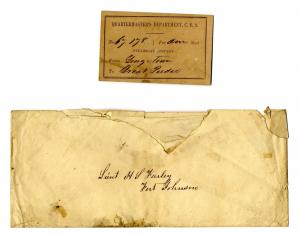 QUARTERMASTER'S DEPARTMENT, C. S. A.
No 67 178
STEAMBOAT
From George Town
To Great Peedee
Lieut H S Farley
Fort Johnson